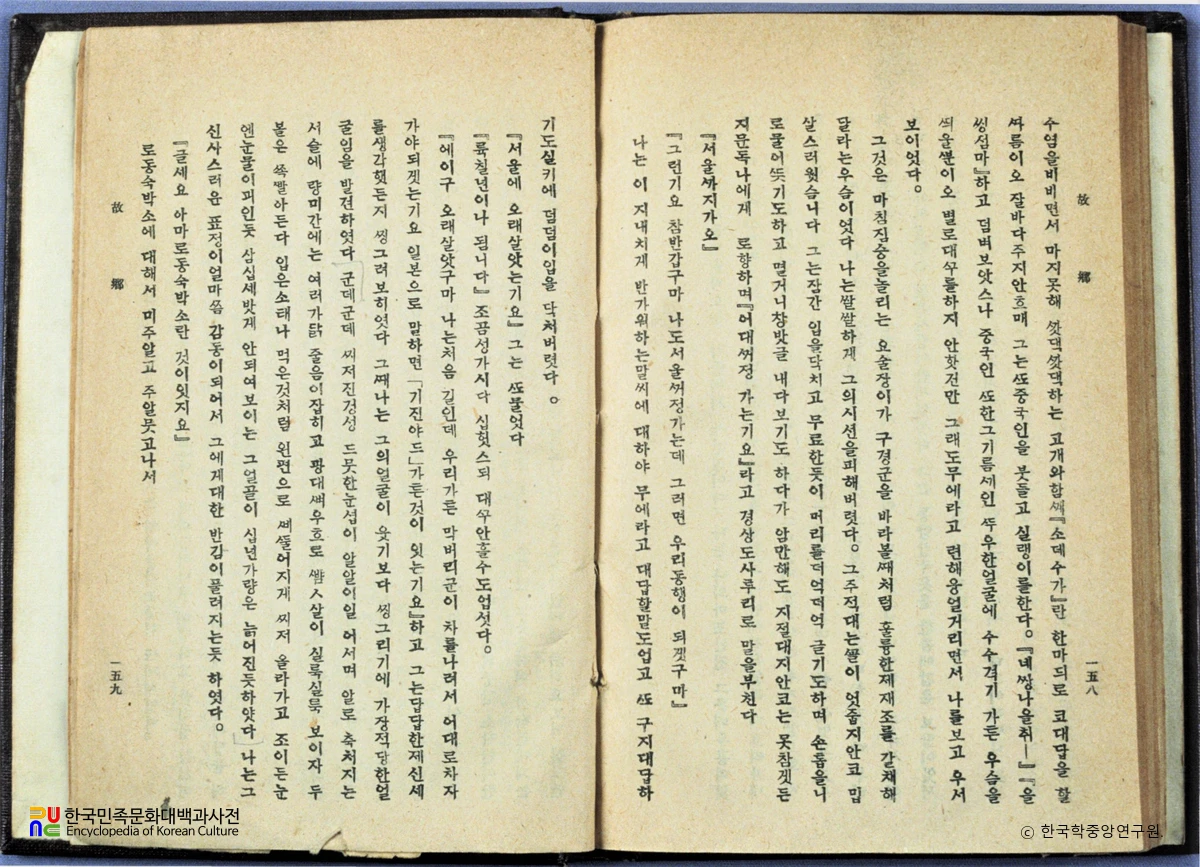 故鄕
一五八
수염을비비면서 마지못해 깟댁깟댁하는 고개와함께『소데수가』란 한마듸로 코대답을 할
따름이오 잘바다주지안흐매 그는또중국인을 붓들고 실랭이를한다。『네쌍나올취―』『을
씽섬마』하고 덤벼보앗스나 중국인 또한그기름세인 뚜우한얼굴에 수수격기 가튼 우슴을
띄울뿐이오 별로대꾸를하지 안핫건만 그래도무에라고 련해웅얼거리면서 나를보고 우서
보이엇다。
그것은 마침짐승을놀리는 요술쟁이가 구경군을 바라볼때처럼 훌륭한제재조를 갈채해
달라는우슴이엇다 나는쌀쌀하게 그의시선을피해버렷다。그주적대는꼴이 엇줍지안코 밉
살스러웟슴니다 그는잠간 입을닥치고 무료한듯이 머리를더억더억 글기도하며 손톱을니
로물어뜻기도하고 멀거니창밧글 내다보기도 하다가 암만해도 지절대지안코는 못참겟든
지문득나에게 로향하며『어대꺼정 가는기요』라고 경상도사투리로 말을부친다
『서울까지가오』
『그런기요 참반갑구마 나도서울꺼정가는데 그러면 우리동행이 되겟구마』
나는 이 지내치게 반가워하는말씨에 대하야 무에라고 대답할말도업고 또 구지대답하
기도실키에 덤덤이입을 닥처버렷다 。
『서울에 오래살앗는기요』 그는 또물엇다
『륙칠년이나 됩니다』 조곰성가시다 십헛스되 대꾸안흘수도업섯다。
『에이구 오래살앗구마 나는처음 길인데 우리가튼 막버리군이 차를나려서 어대로차자
가야되겟는기요 일본으로 말하면 「기진야드」가튼것이 잇는기요』하고 그는답답한제신세
를생각햇든지 찡그려보히엿다 그때나는 그의얼굴이 웃기보다 찡그리기에 가장적당한얼
굴임을 발견하엿다 군데군데 찌저진겅성 드뭇한눈섭이 알알이일 어서며 알로 축처지는
서슬에 량미간에는 여러가닭 줄음이잡히고 광대뼈우흐로 뺨ㅅ살이 실룩실룩 보이자 두
볼은 쪽빨아든다 입은소태나 먹은것처럼 왼편으로 삐뚤어지게 찌저 올라가고 조이든눈
엔눈물이괴인듯 삼십세밧게 안되여보이는 그얼골이 십년가량은 늙어진듯하얏다 나는그
신사스러운 표정이얼마쯤 감동이되어서 그에게대한 반감이풀려지는듯 하엿다。
『글세요 아마로동숙박소란 것이잇지요』
로동숙박소에 대해서 미주알고 주알뭇고나서
故鄕
一五九
한국민족문화대백과사전
Encyclopedia of Korean Culture
© 한국학중앙연구원